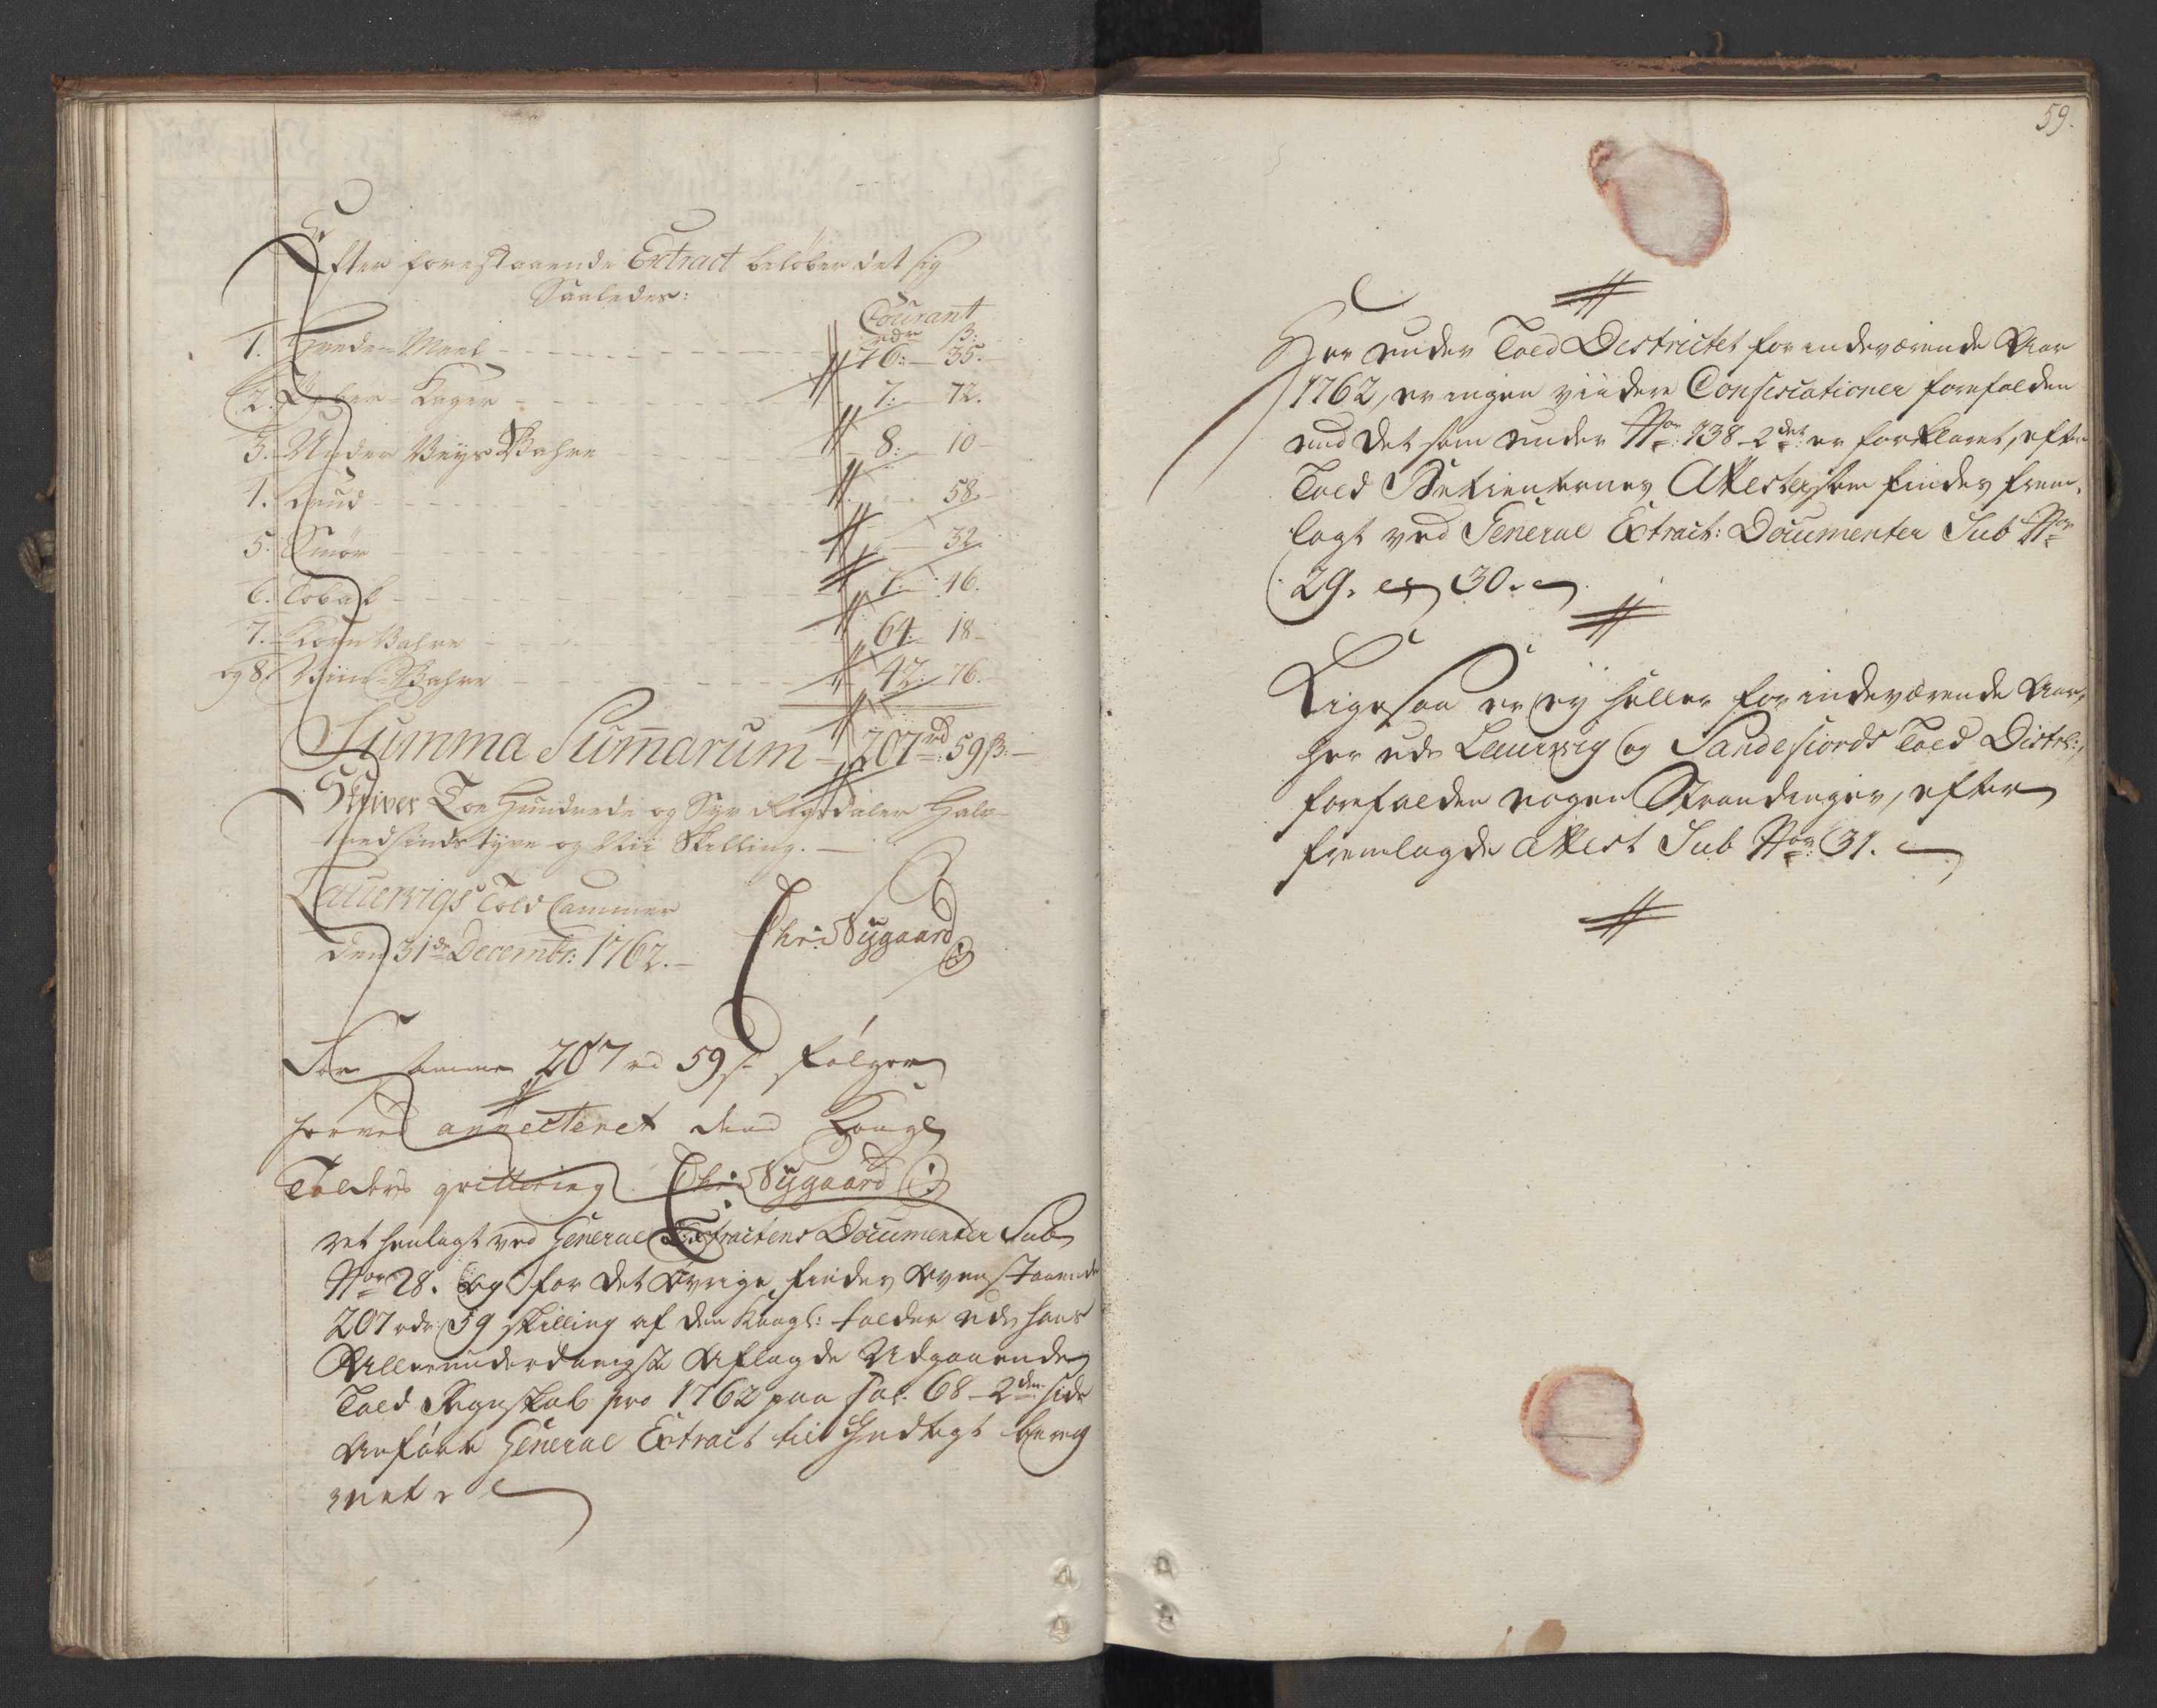 Efter forestaaende Extract beløber det sig
Saaledes:
Courant
rdr ß:
1. Hvede-Meel 76: 35.
2. Peber-Kager 7: 72.
3. Under Veys Vahre 8: 10
4. Brød 58.
5. Smør 32.
6. Tobak 7. 46.
7. Korn Vahre 64. 18
og 8. Viin-Vahre 42. 76.
Summa Summarum 207 rd: 59 ß:
Skriver Toe Hundrede og Syv Rigsdaler Halv-
tredsindstyve og Nii Skilling.
Laurvigs Told Cammer
den 31de Decembr: 1762.
Chr: Nygaard
For samme 207 rd 59 s. følger
herved annecteret dend Kongl
Tolders qvittering Chr: Nygaard
vet henlagt ved General Extractens Documenter Sub
No: 28. Og for det øvrige findes ovenstaaende
207 rdr: 59 skilling af den Kongl: tolder udi hans
Allerunderdanigste Aflagde Udgaaende
Told Regnskab pro 1762 paa fol: 68-2den side
Anførte General Extract til Indtegt bereg
net
59.
Her under Told Destrictet for indeværende Aar
1762, er ingen viidere Confiscationer forefalden
end det som under No: 138-2det er forklaret, efter
Told Betienternes Attester, som findes frem-
lagt ved General Extract: Documenter Sub No:
29. et 30.
Ligesaa er ey heller for indeværende Aar,
her udi Laurvig og Sandefiords Told Distrl:,
forefalden nogen Strandinger, efter
fremlagde Attest Sub No: 31.